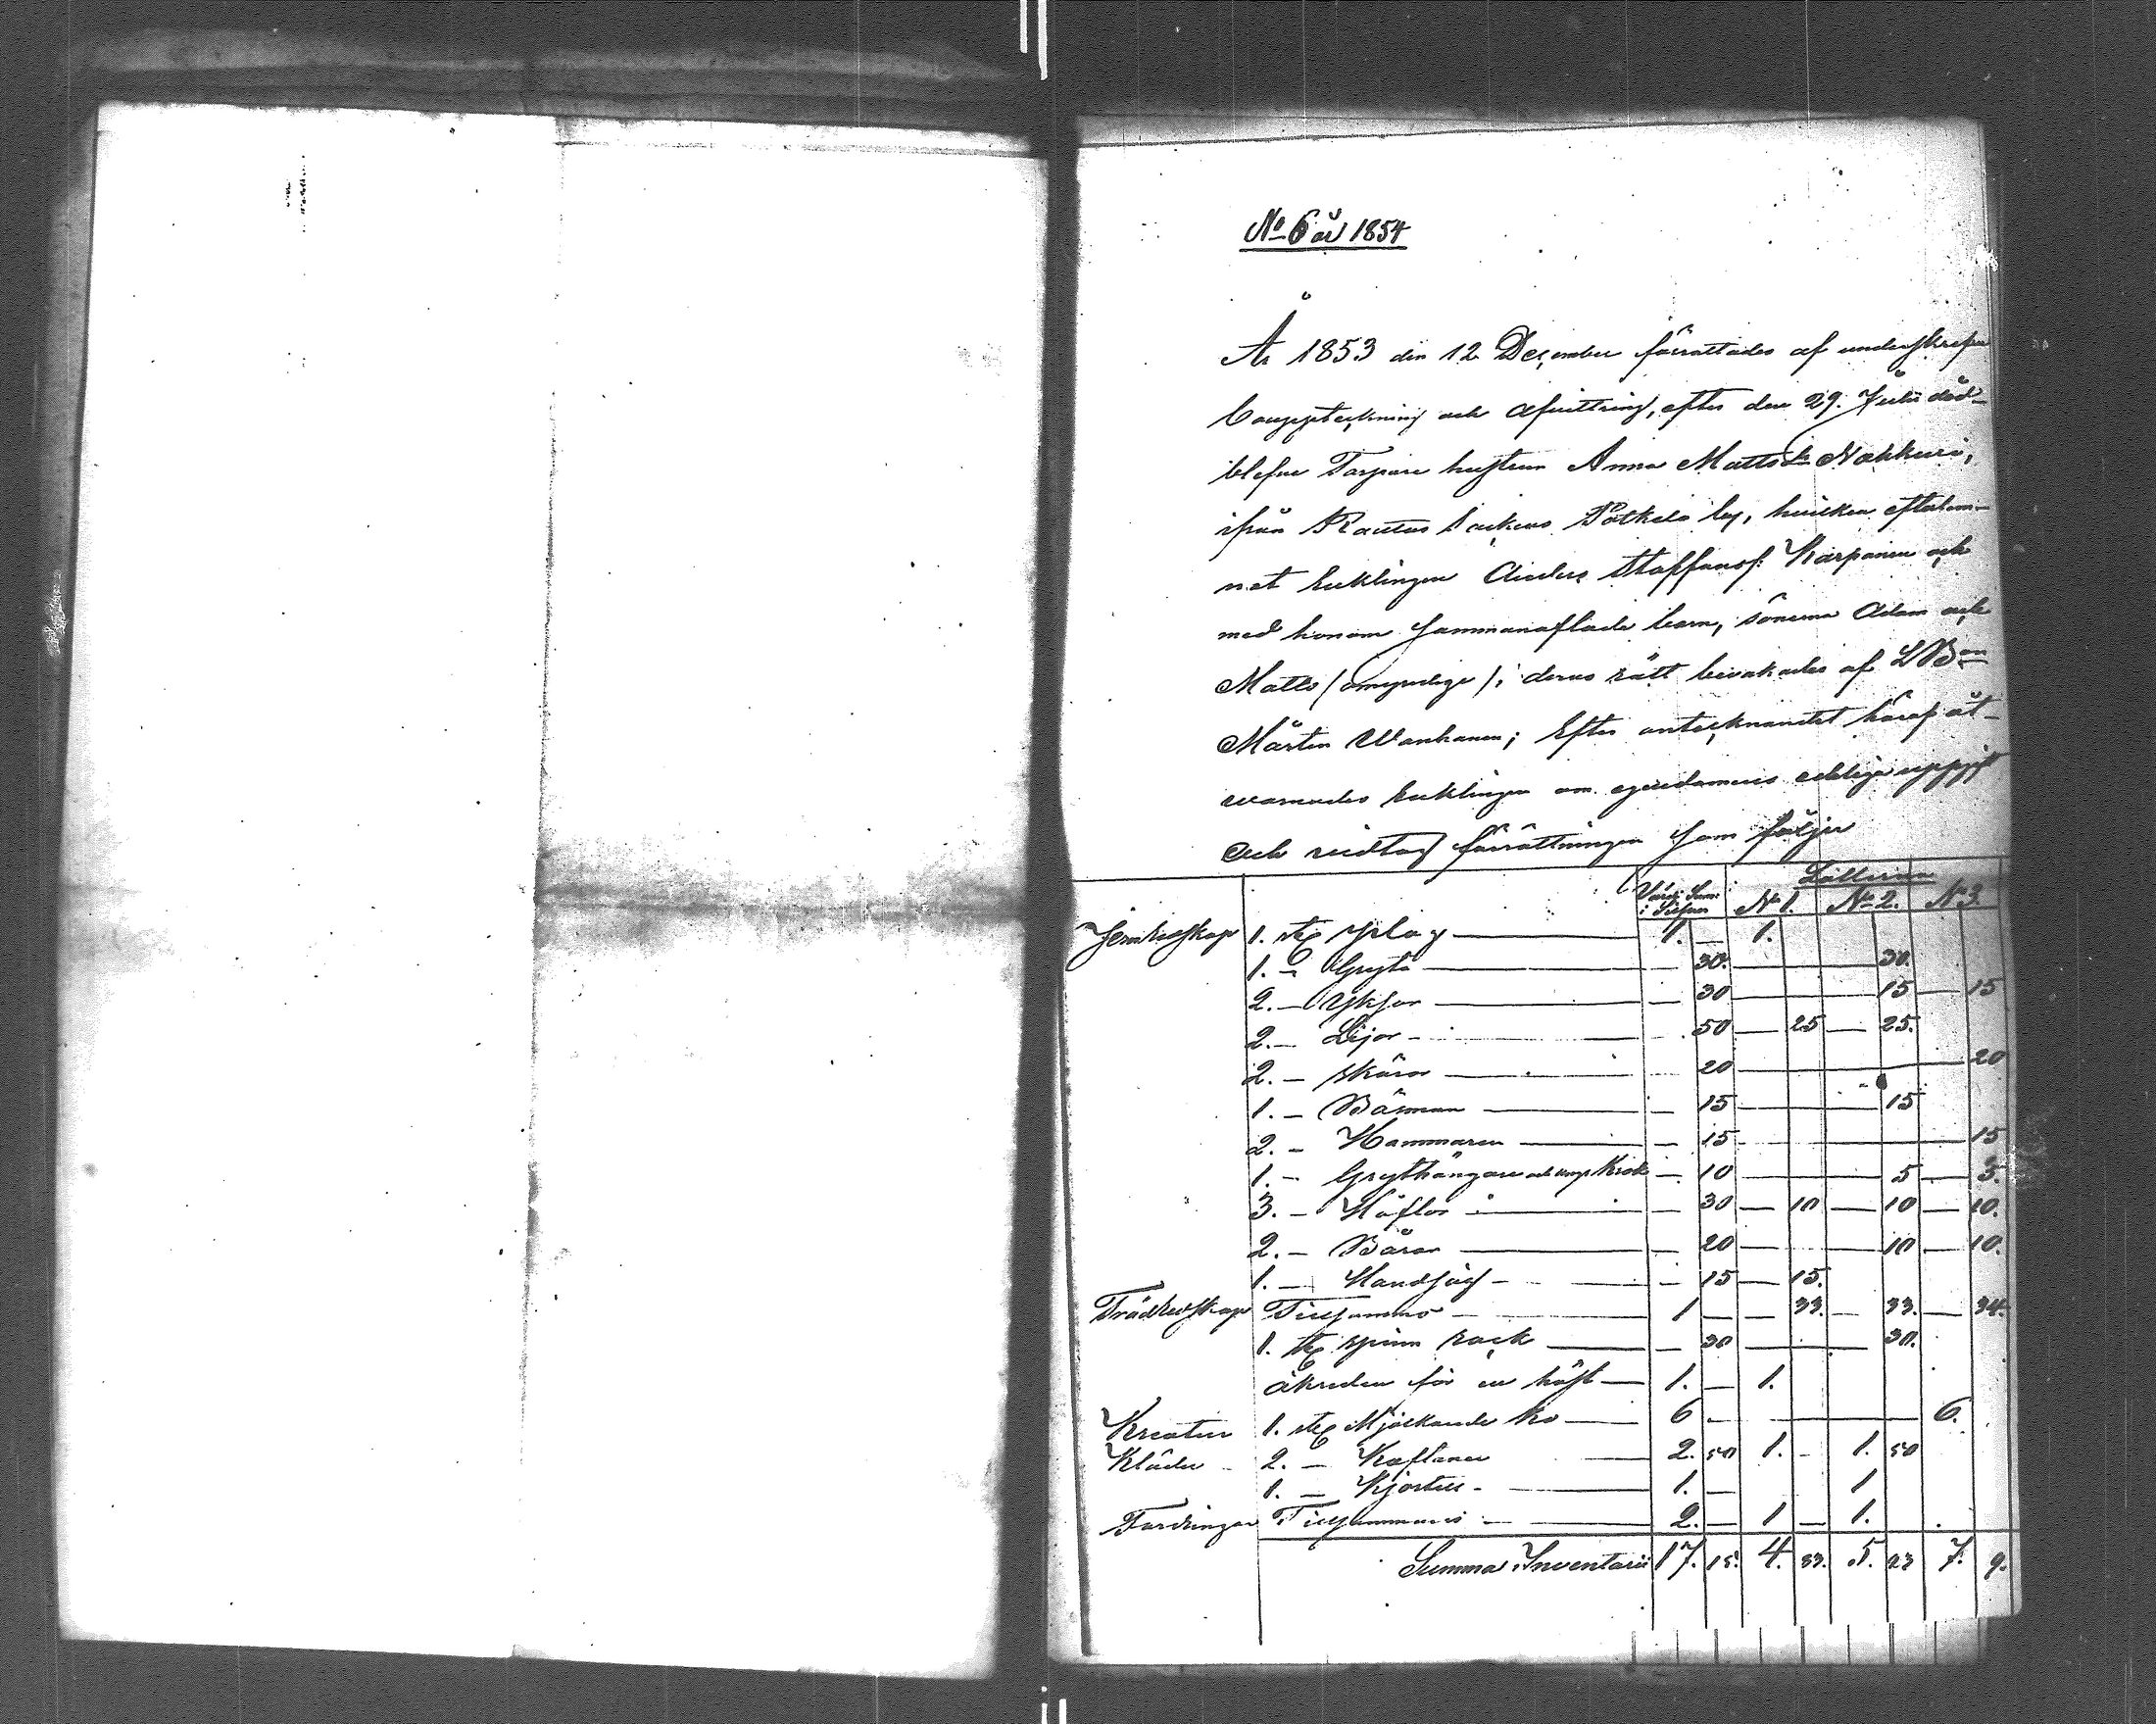 No 6 år 1854
År 1853 den 12 December förrättades af underskrefne
bouppteckning och afvittring, efter den 29. Julii död-
blefne Torpare hustrun Anna Mattsdr Nakkuri,
ifrån Rautus Sockens Potkela by, hvilken efterlem-
nat Enklingen Anders Staffansf. Karpanen och
med honom sammanaflade barn, sönerna Adam och
Matts (omyndige); deras rätt bevakades af LBon
Mårten Wanhanen; Efter antecknandet häraf åt-
warnades Enklingen om egendomens edelige uppgift
och vidtog förrättningen som följer
Lotterna
Värde Sum: i Silfver No 1. No 2. No 3.
Jernredskap 1. st Plog 1. — 1.
1. — Gryta — 30. 30.
2. — Yxor — 30 15 — 15
2. — Lijor 50 — 25 — 25.
2. — skäror 20 20
1. — Bäsman — 15 15
2. — Hammaren — 15 15
1. — Grythängare och Krok — 10 5 — 5.
3. — Häflor — 30 — 10 — 10 — 10.
2. — Bårar — 20 10 — 10.
1. — Handsåg — 15 — 15.
Trädredskap Tillsammans 1 — 33. — 33. — 34.
1. st spinn rock — 30 30.
åkredon för en häst 1. — 1.
Kreatur 1. st Mjölkande Ko 6 — 6.
Kläder 2. — Kaftaner 2. 50 1. — 1. 50
1. — Kjortel 1. — 1
Fordringar Tillsammans 2. — 1 — 1.
Summa Inventarii 17. 15. 4. 33. 5. 23 7. 9.